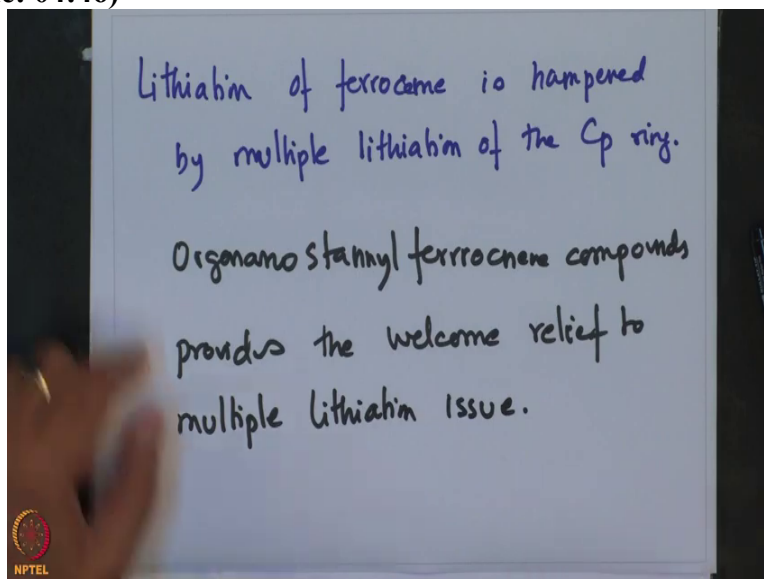 c. 04:40)
Lithiation of ferrocene is hampered
by multiple lithiation of the Cp ring.
Organamo stannyl ferrrocnene compounds
provides the welcome relief to
multiple lithiation issue.
NPTEL